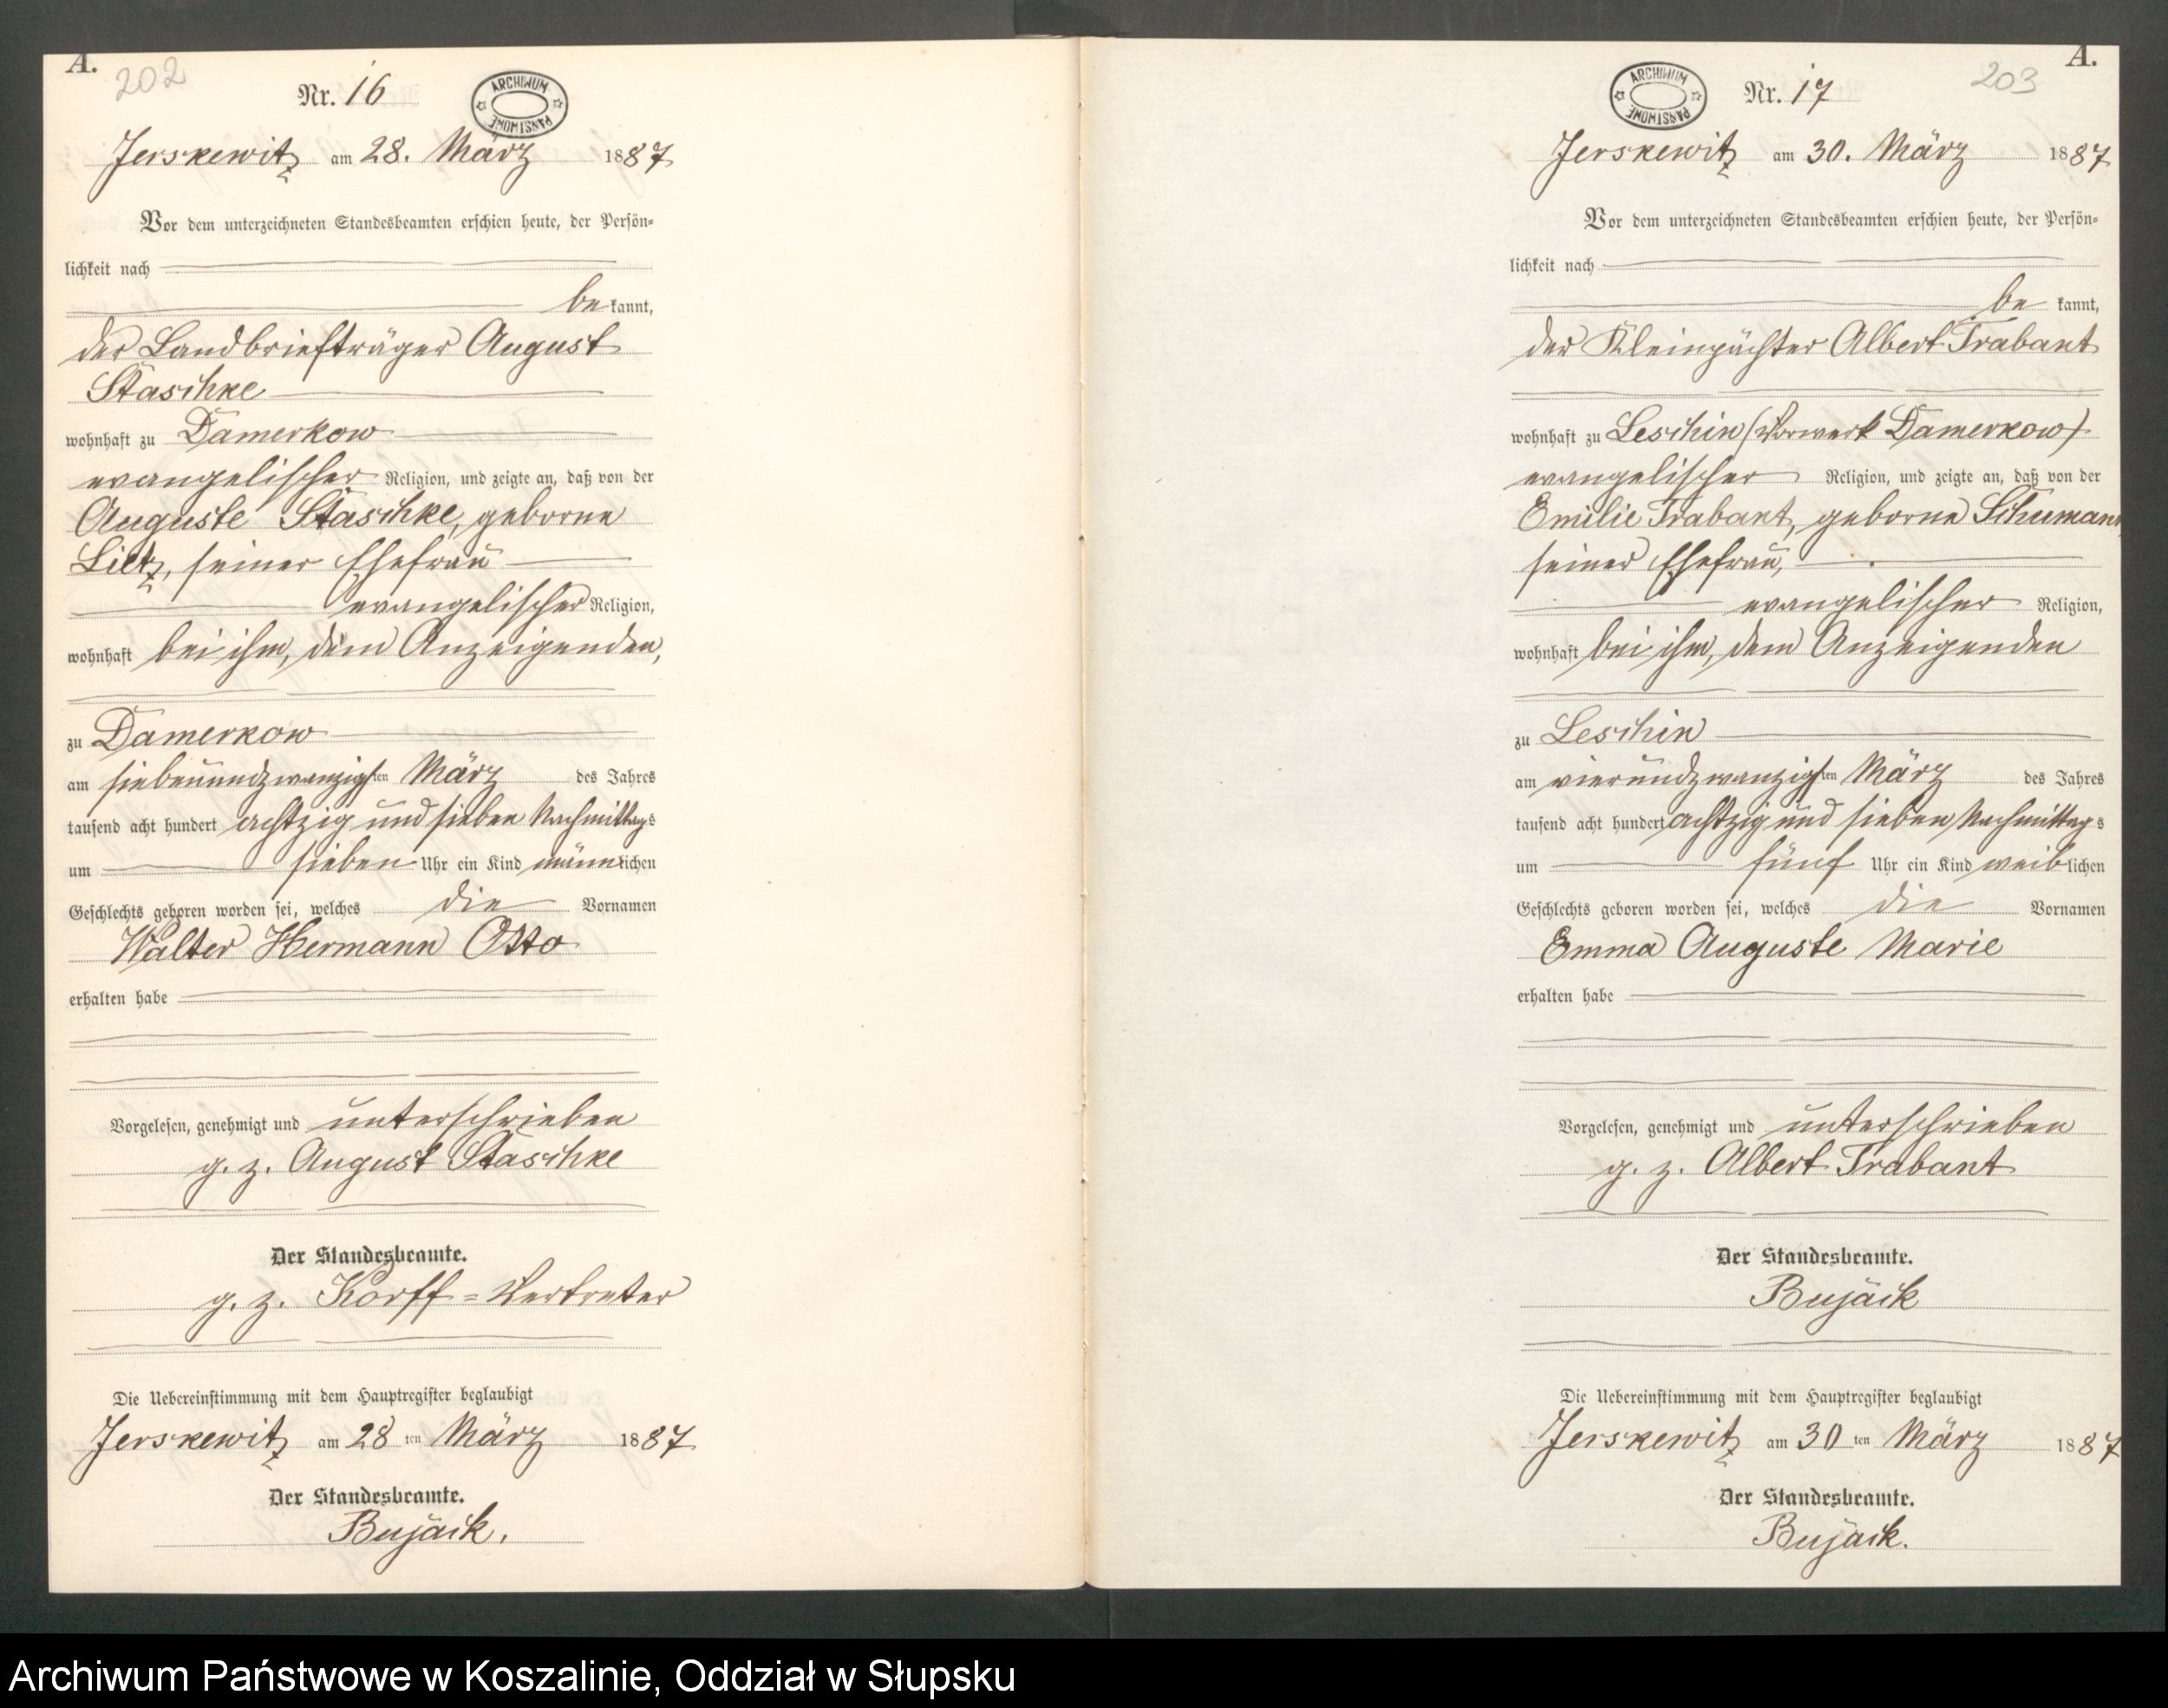 A.
202
Nr. 16
ARCHIWUM PAŃSTWOWE
Jerskewitz am 28. März 1887
Vor dem unterzeichneten Standesbeamten erschien heute, der Persön-
lichkeit nach
be kannt,
der Landbriefträger August
Staschke
wohnhaft zu Damerkow
evangelischer Religion, und zeigte an, daß von der
Auguste Staschke, geborne
Lietz, seiner Ehefrau
evangelischer Religion,
wohnhaft bei ihm, dem Anzeigenden,
zu Damerkow
am siebenundzwanzigsten März des Jahres
tausend acht hundert achtzig und sieben Nachmittags
um sieben Uhr ein Kind männlichen
Geschlechts geboren worden sei, welches die Vornamen
Walter Hermann Otto
erhalten habe
Vorgelesen, genehmigt und unterschrieben
g. z. August Staschke
Der Standesbeamte.
g. z. Korff = Vertreter
Die Uebereinstimmung mit dem Hauptregister beglaubigt
Jerskewitz am 28 ten März 1887
Der Standesbeamte.
Bujack.
A.
203
Nr. 17
ARCHIWUM PAŃSTWOWE
Jerskewitz am 30. März 1887
Vor dem unterzeichneten Standesbeamten erschien heute, der Persön-
lichkeit nach
be kannt,
der Kleinpächter Albert Trabant
wohnhaft zu Leschin (Vorwerk Damerkow)
evangelischer Religion, und zeigte an, daß von der
Emilie Trabant, geborne Schumann
seiner Ehefrau,
evangelischer Religion,
wohnhaft bei ihm, dem Anzeigenden
zu Leschin
am vierundzwanzigsten März des Jahres
tausend acht hundert achtzig und sieben Nachmittags
um fünf Uhr ein Kind weiblichen
Geschlechts geboren worden sei, welches die Vornamen
Emma Auguste Marie
erhalten habe
Vorgelesen, genehmigt und unterschrieben
g. z. Albert Trabant
Der Standesbeamte.
Bujack
Die Uebereinstimmung mit dem Hauptregister beglaubigt
Jerskewitz am 30 ten März 1887
Der Standesbeamte.
Bujack.
Archiwum Państwowe w Koszalinie, Oddział w Słupsku